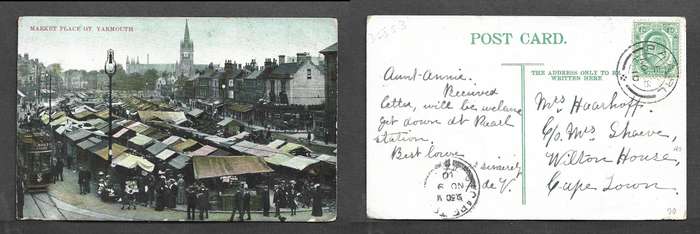 MARKET PLACE GT. YARMOUTH
POST CARD.
THE ADDRESS ONLY TO BE
WRITTEN HERE.
Aunt-Annie.
Received
letter, will be
get down at Paarl
station.
Best love
sincerely
de V.
Mrs Haarhoff.
c/o Mrs
Wilton House,
Cape Town.